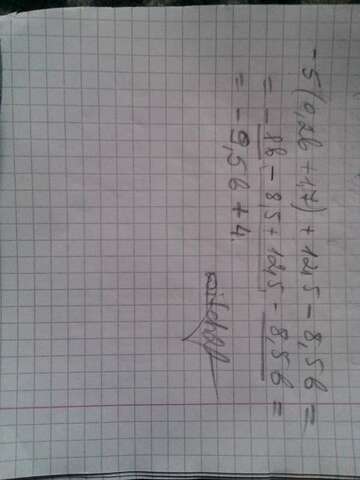 -5(0,2b + 1,7) + 12,5 - 8,5b =
= - 8b - 8,5 + 12,5 - 8,5b =
= - 9,5b + 4